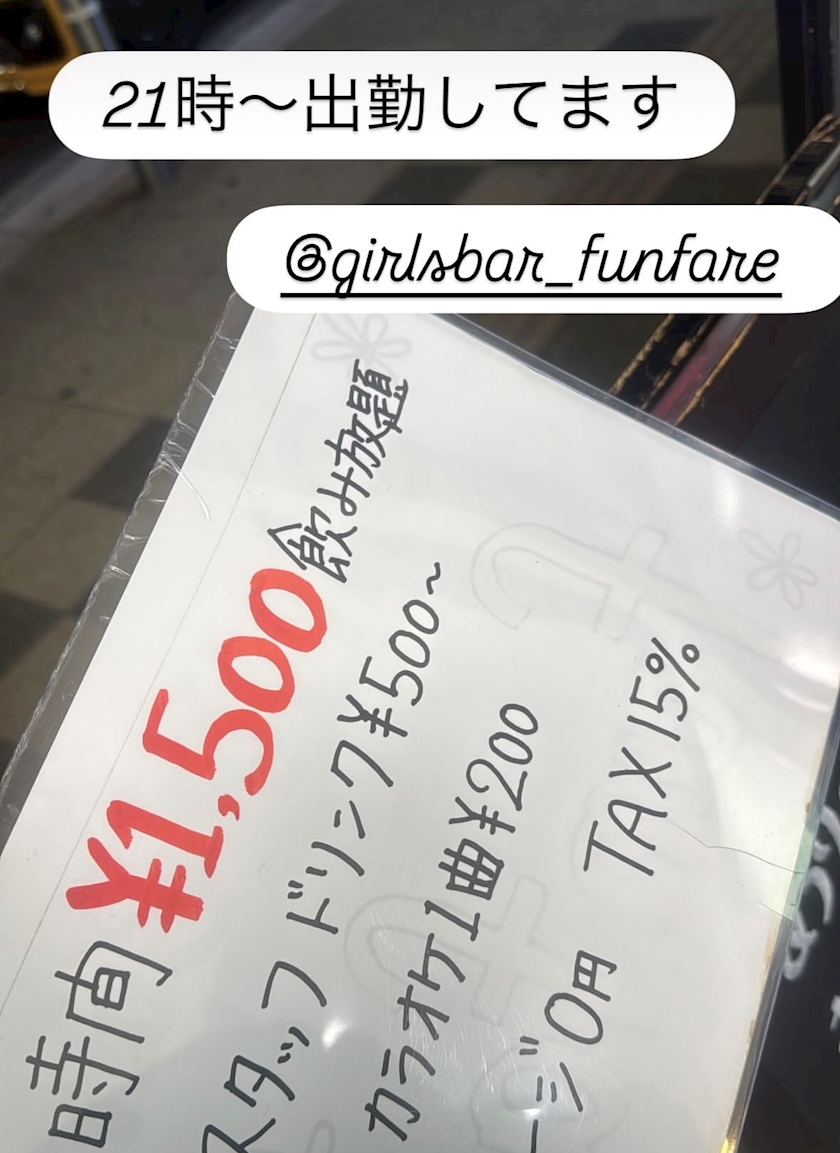 21時〜出勤してます
@girlsbar_funfare
時間 ¥1,500 飲み放題
スタッフドリンク¥500~
カラオケ1曲¥200
ージ0円 TAX15%